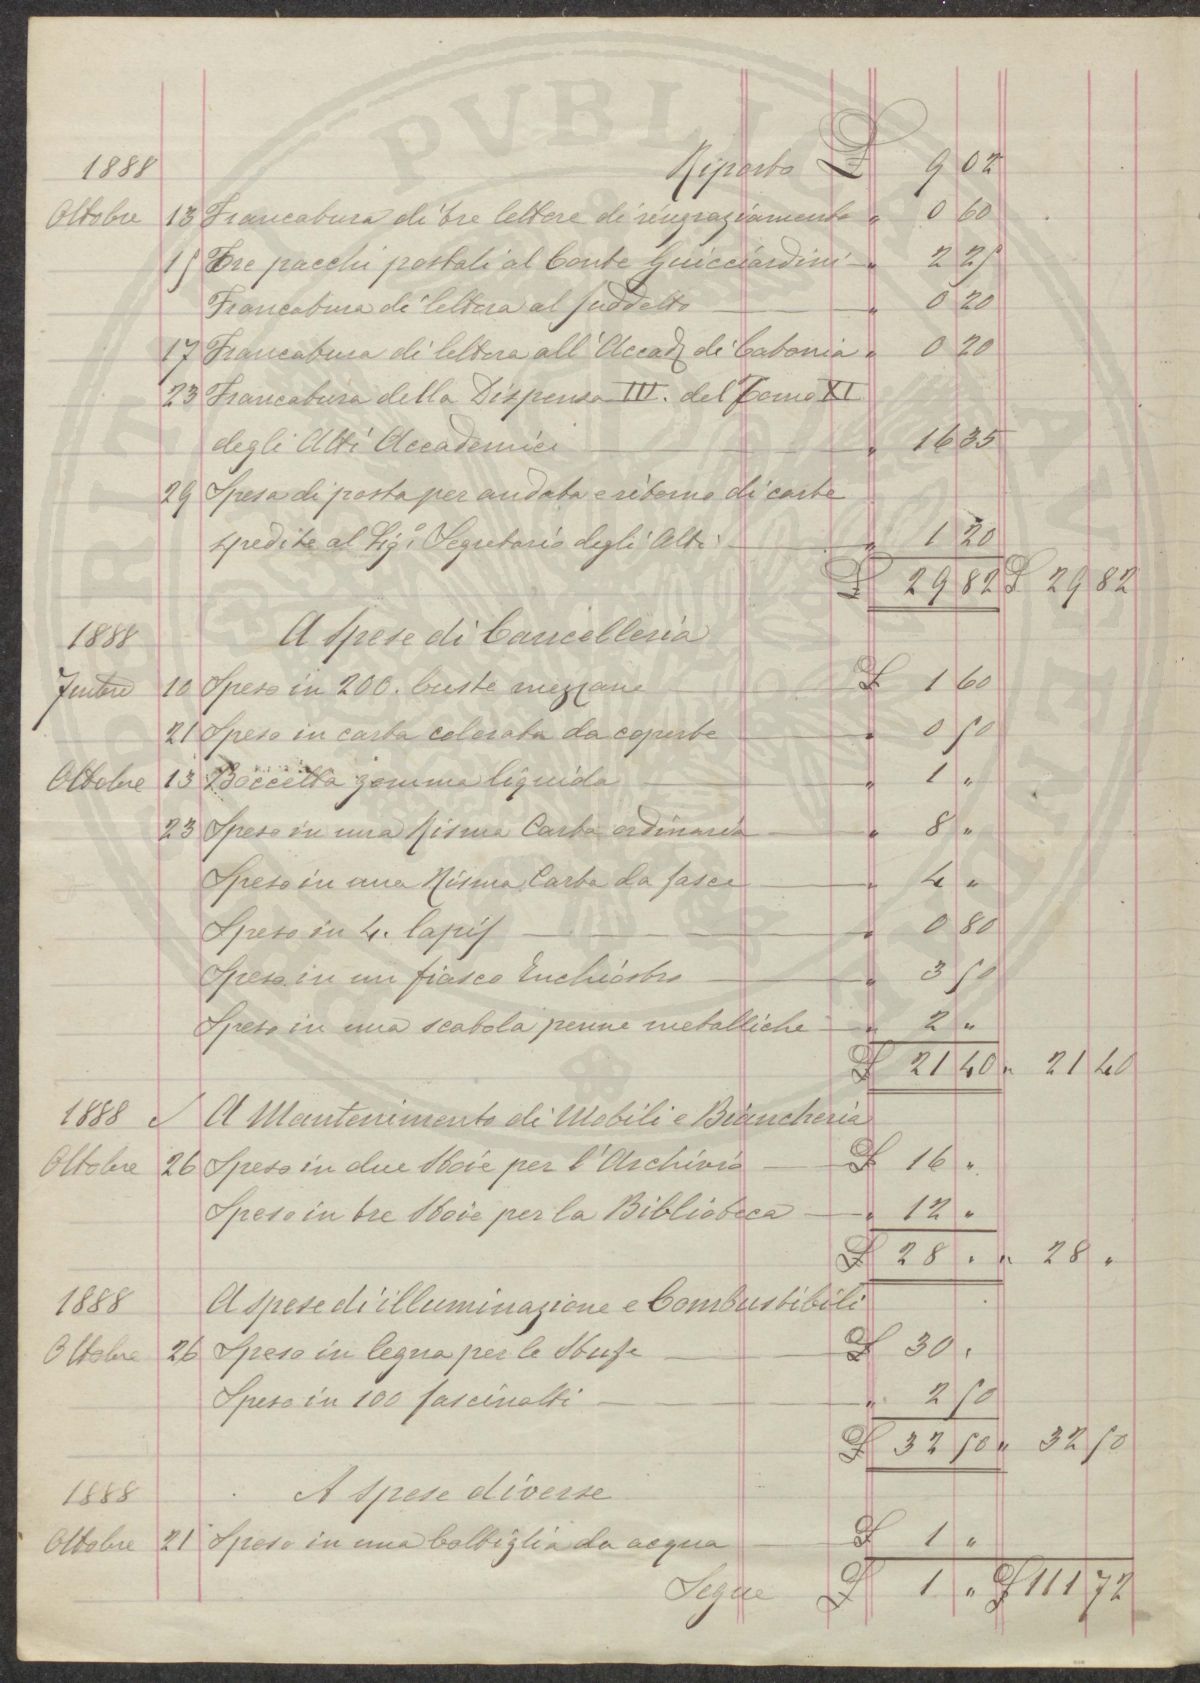 1888 Riporto £ 9 02
Ottobre 13 Francatura di tre lettere di ringraziamento " 0 60
15 Tre pacchi postali al Conte Guicciardini " 2 25
Francatura di lettera al suddetto " 0 20
17 Francatura di lettera all'Accad. di Catania " 0 20
23 Francatura della Dispensa III. del Tomo XI
degli Atti Accademici " 16 35
29 Spesa di posta per andata e ritorno di carte
spedite al Sig.r Segretario degli Atti " 1 20
£ 29 82 £ 29 82
1888 A spese di Cancelleria
7mbre 10 Speso in 200. buste mezzane £ 1 60
21 Speso in carta colorata da coperte " 0 50
Ottobre 13 Boccetta gomma liquida " 1 "
23 Speso in una Risma Carta ordinaria " 8 "
Speso in una Risma Carta da fasce " 4 "
Speso in 4. lapis " 0 80
Speso in un fiasco Inchiostro " 3 50
Speso in una scatola penne metalliche " 2 "
£ 21 40 " 21 40
1888 A Mantenimento di Mobili e Biancheria
Ottobre 26 Speso in due Stoie per l'Archivio £ 16 "
Speso in tre Stoie per la Biblioteca " 12 "
£ 28 " " 28 "
1888 A spese di illuminazione e Combustibili
Ottobre 26 Speso in legna per le Stufe £ 30 "
Speso in 100 fascinotti " 2 50
£ 32 50 " 32 50
1888 A spese diverse
Ottobre 21 Speso in una bottiglia da acqua £ 1 "
Segue £ 1 " £ 111 72